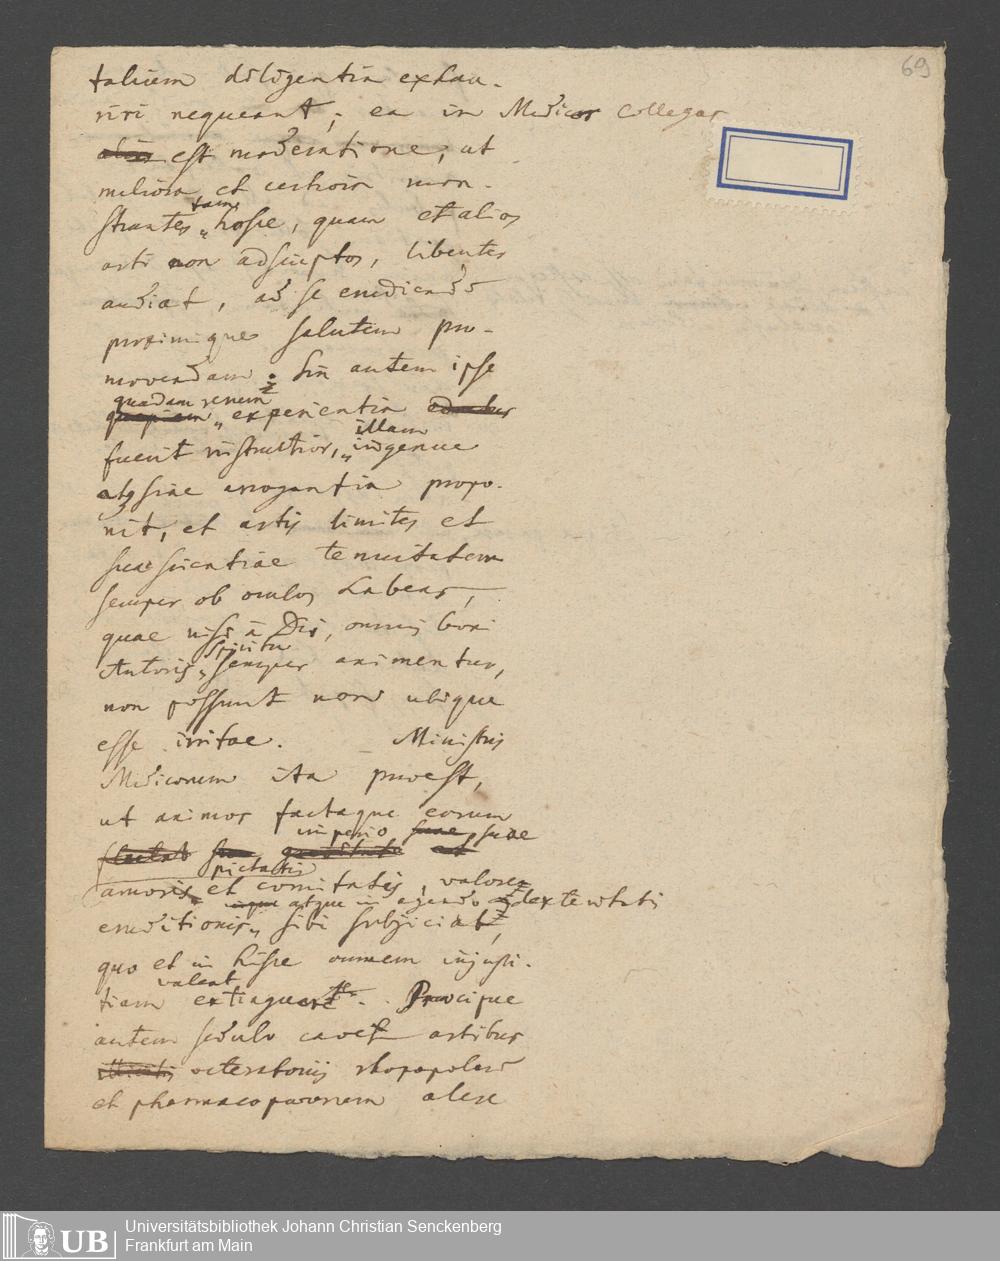 69
talium diligentia exhau-
riri nequeant; ea in Medicos Collegas
est moderatione, ut
meliora et certiora mon-
strantes tam hosce, quam et alios
arti non adscriptos, libenter
audiat, ad se erudiendum
proximique salutem pro-
movendam. Sin autem ipse
quadam rerum
experientia
fuerit instructior, illam ingenue
atq sine arrogantia propo-
nit, et artis limites et
suae scientiae tenuitatem
semper ob oculos habens,
quae nisi a Deo, omnis boni
Autoris, spiritu semper animentur,
non possunt non ubique
esse irritae. Ministris
Medicorum ita prodest,
ut animos factaque eorum
imperio suae
pietatis
amoris et comitatis, valore
atque in agendo dexteritatis
eruditionis, sibi subjiciat,
quo et in hisce omnem injusti-
tiam valeat extinguere. Praecipue
autem sedulo cavet artibus
et pharmacopoeorum alere
Universitätsbibliothek Johann Christian Senckenberg
Frankfurt am Main
UB